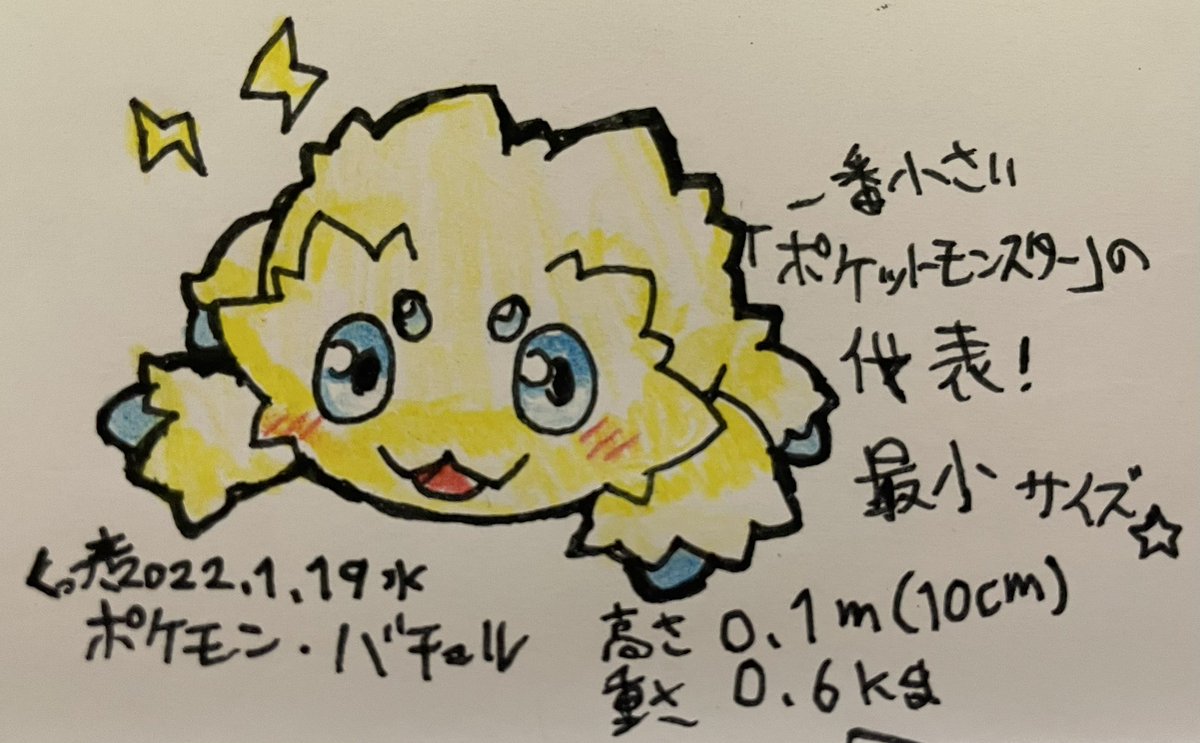 一番小さい
「ポケットモンスター」の
代表!
最小サイズ☆
2022.1.19水
ポケモン・バチュル
高さ 0.1m(10cm)
重さ 0.6kg